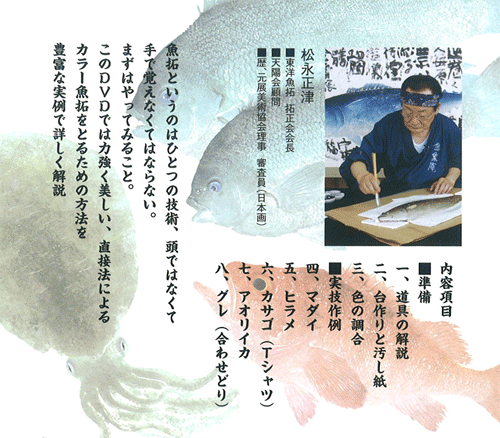 松永正津
■東洋魚拓 拓正会会長
■天陽会顧問
■歴、元展美術協会理事 審査員(日本画)
魚拓というのはひとつの技術、頭ではなくて
手で覚えなくてはならない。
まずはやってみること。
このDVDでは力強く美しい、直接法による
カラー魚拓をとるための方法を
豊富な実例で詳しく解説
内容項目
■準備
一、道具の解説
二、台作りと汚し紙
三、色の調合
■実技作例
四、マダイ
五、ヒラメ
六、カサゴ(Tシャツ)
七、アオリイカ
八、グレ(合わせどり)